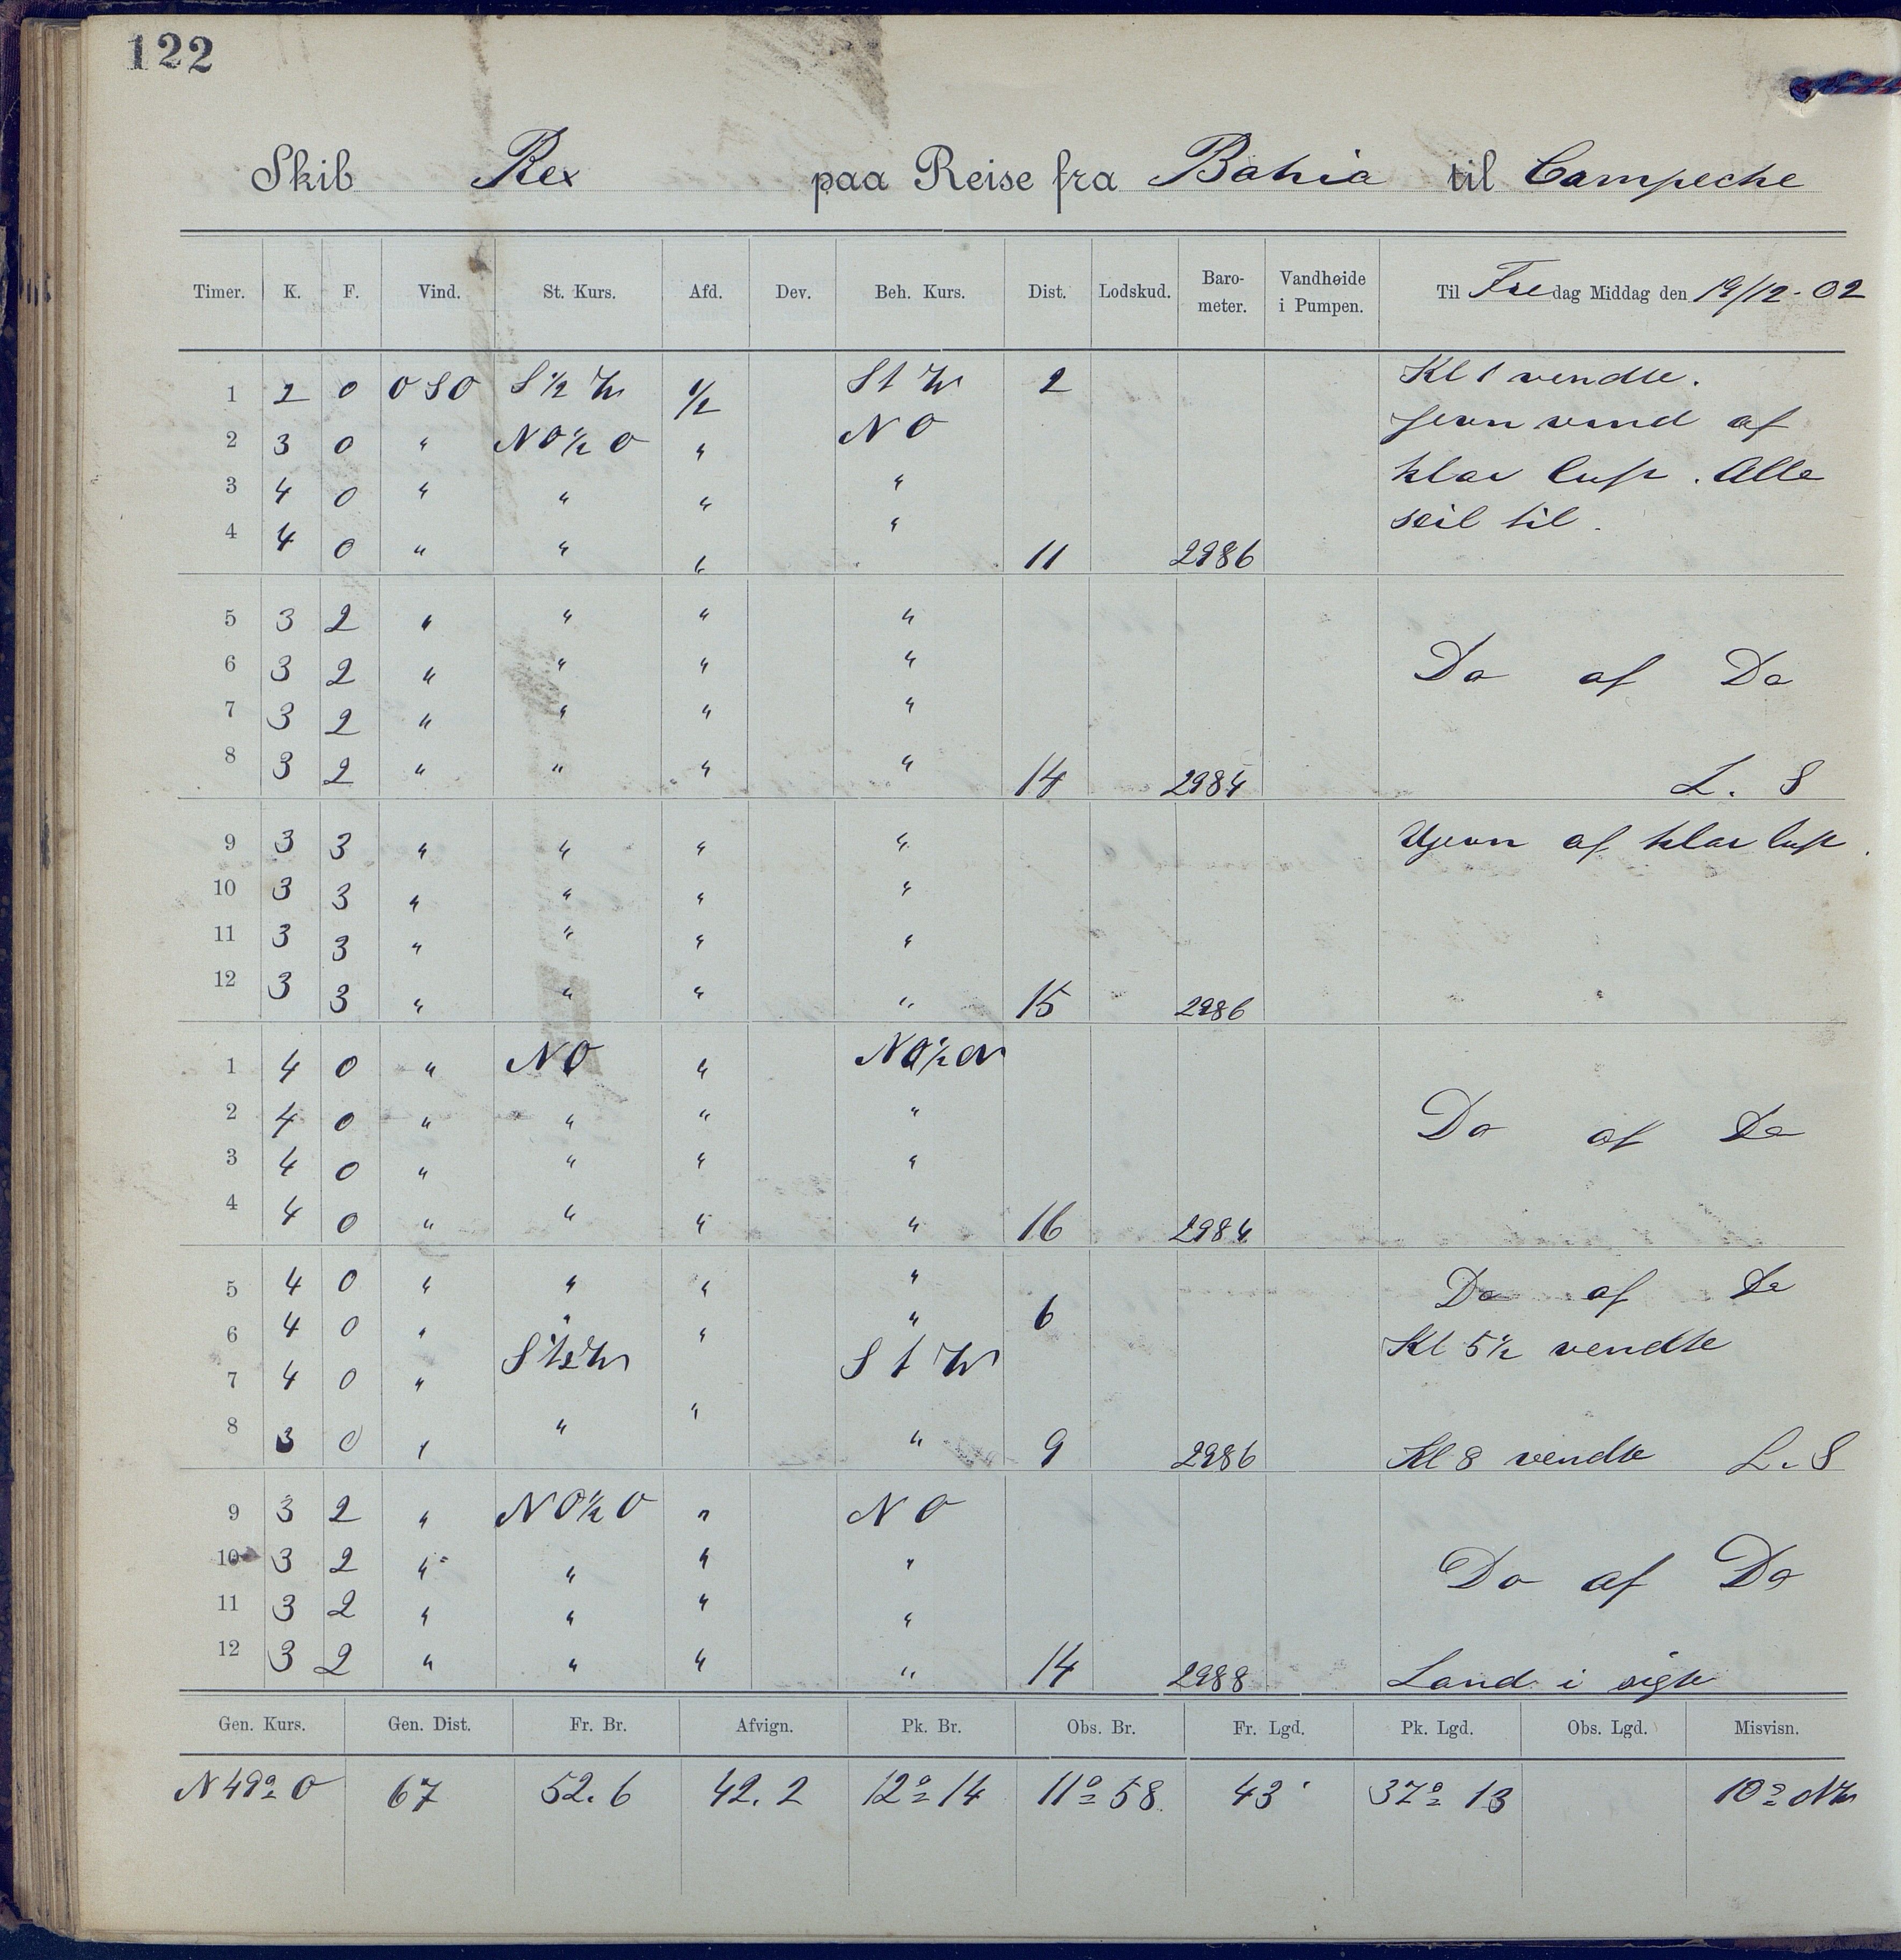 122
Skib Rex paa Reise fra Bahia til Campeche
Timer. K. F. Vind. St. Kurs. Afd. Dev. Beh. Kurs. Dist. Lodskud. Baro-meter. Vandhøide i Pumpen. Til Fredag Middag den 19/12-02
1 2 0 OSO S 1/2 W 1/2 S t W 2 Kl 1 vendte.
2 3 0 " NO 1/2 O " NO Jevn vind af
3 4 0 " " " " klar luft. Alle
4 4 0 " " " " 11 2986 seil til.
5 3 2 " " " "
6 3 2 " " " " Do af Do
7 3 2 " " " "
8 3 2 " " " " 14 2984 L. S
9 3 3 " " " " Ujevn af klar luft.
10 3 3 " " " "
11 3 3 " " " "
12 3 3 " " " " 15 2986
1 4 0 " NO " NO 1/2 N
2 4 0 " " " " Do af Do
3 4 0 " " " "
4 4 0 " " " " 16 2984
5 4 0 " " " " Do af Do
6 4 0 " " " " 6 Kl 5 1/2 vendte
7 4 0 " S 1/2 W S t W
8 3 0 " " " " 9 2986 Kl 8 vendte L. S
9 3 2 " NO 1/2 O " NO
10 3 2 " " " " Do af Do
11 3 2 " " " "
12 3 2 " " " " 14 2988 Land i sigte
Gen. Kurs. Gen. Dist. Fr. Br. Afvign. Pk. Br. Obs. Br. Fr. Lgd. Pk. Lgd. Obs. Lgd. Misvisn.
N 49° O 67 52.6 42.2 12° 14 11° 58 43' 37° 13 10° NW